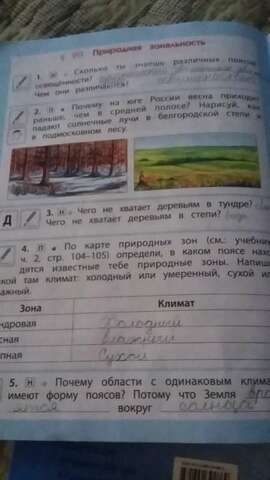 Природная зональность
1. Н • Сколько ты знаешь различных поясов
освещённости?
Чем они различаются?
2. П • Почему на юге России весна приходит
раньше, чем в средней полосе? Нарисуй, как
падают солнечные лучи в белгородской степи и
в подмосковном лесу.
Д
3. Н • Чего не хватает деревьям в тундре?
Чего не хватает деревьям в степи? воды
4. П • По карте природных зон (см. учебник
ч. 2, стр. 104–105) определи, в каком поясе нахо-
дятся известные тебе природные зоны. Напиши
кой там климат: холодный или умеренный, сухой или
ажный.
Зона Климат
ндровая Холодный
сная влажный
пная Сухой
5. Н • Почему области с одинаковым клима
имеют форму поясов? Потому что Земля вра
ется вокруг солнца